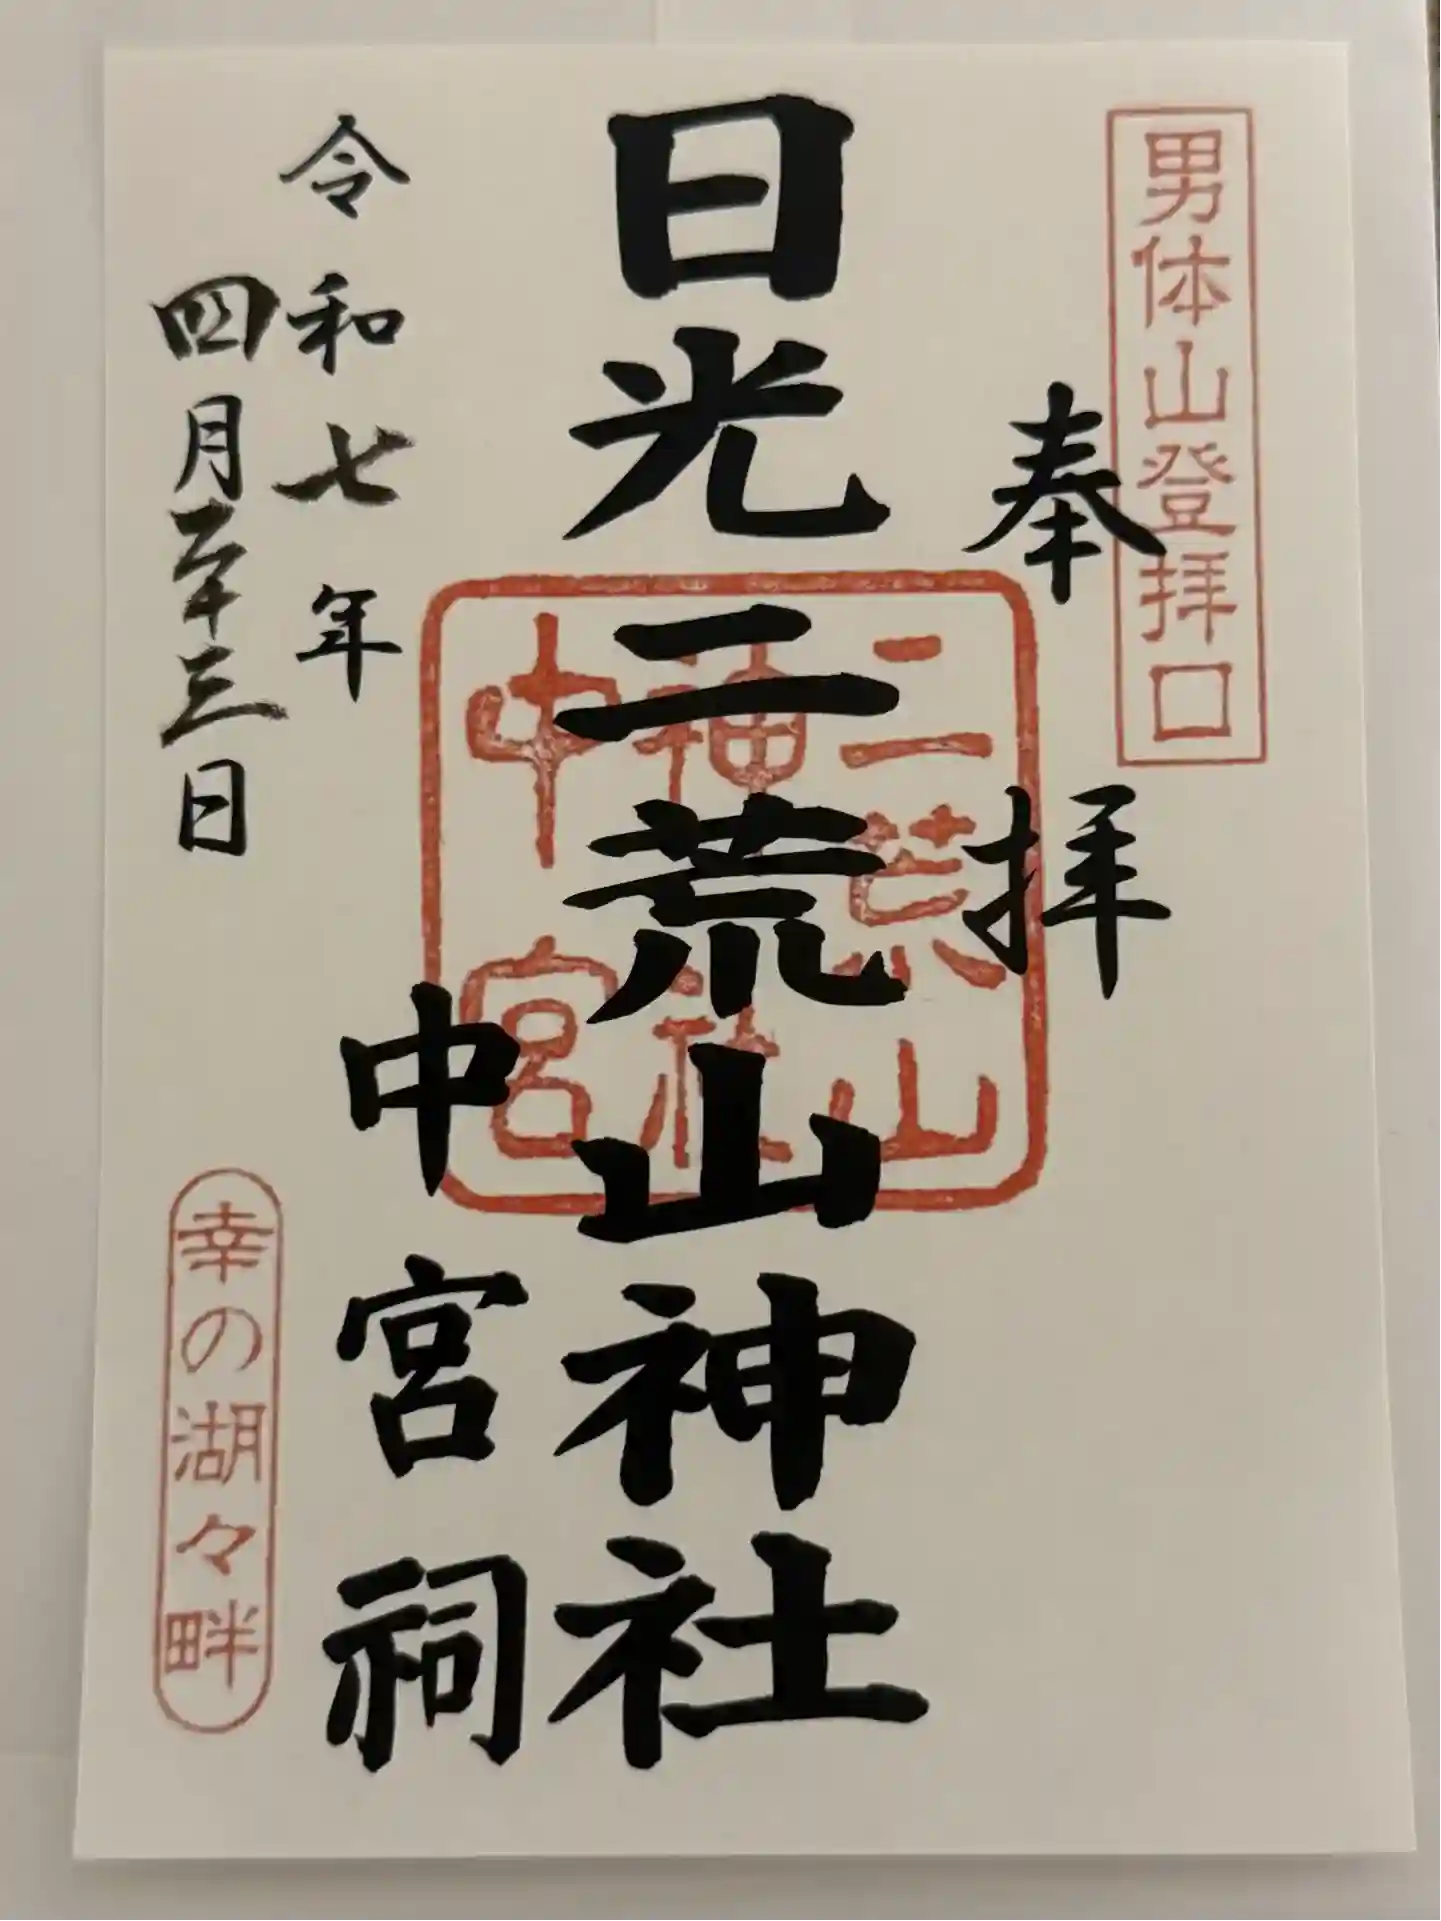 男体山登拝口
奉拝
日光二荒山神社
中宮祠
二荒山
神社
中宮
令和七年
四月二十三日
幸の湖々畔